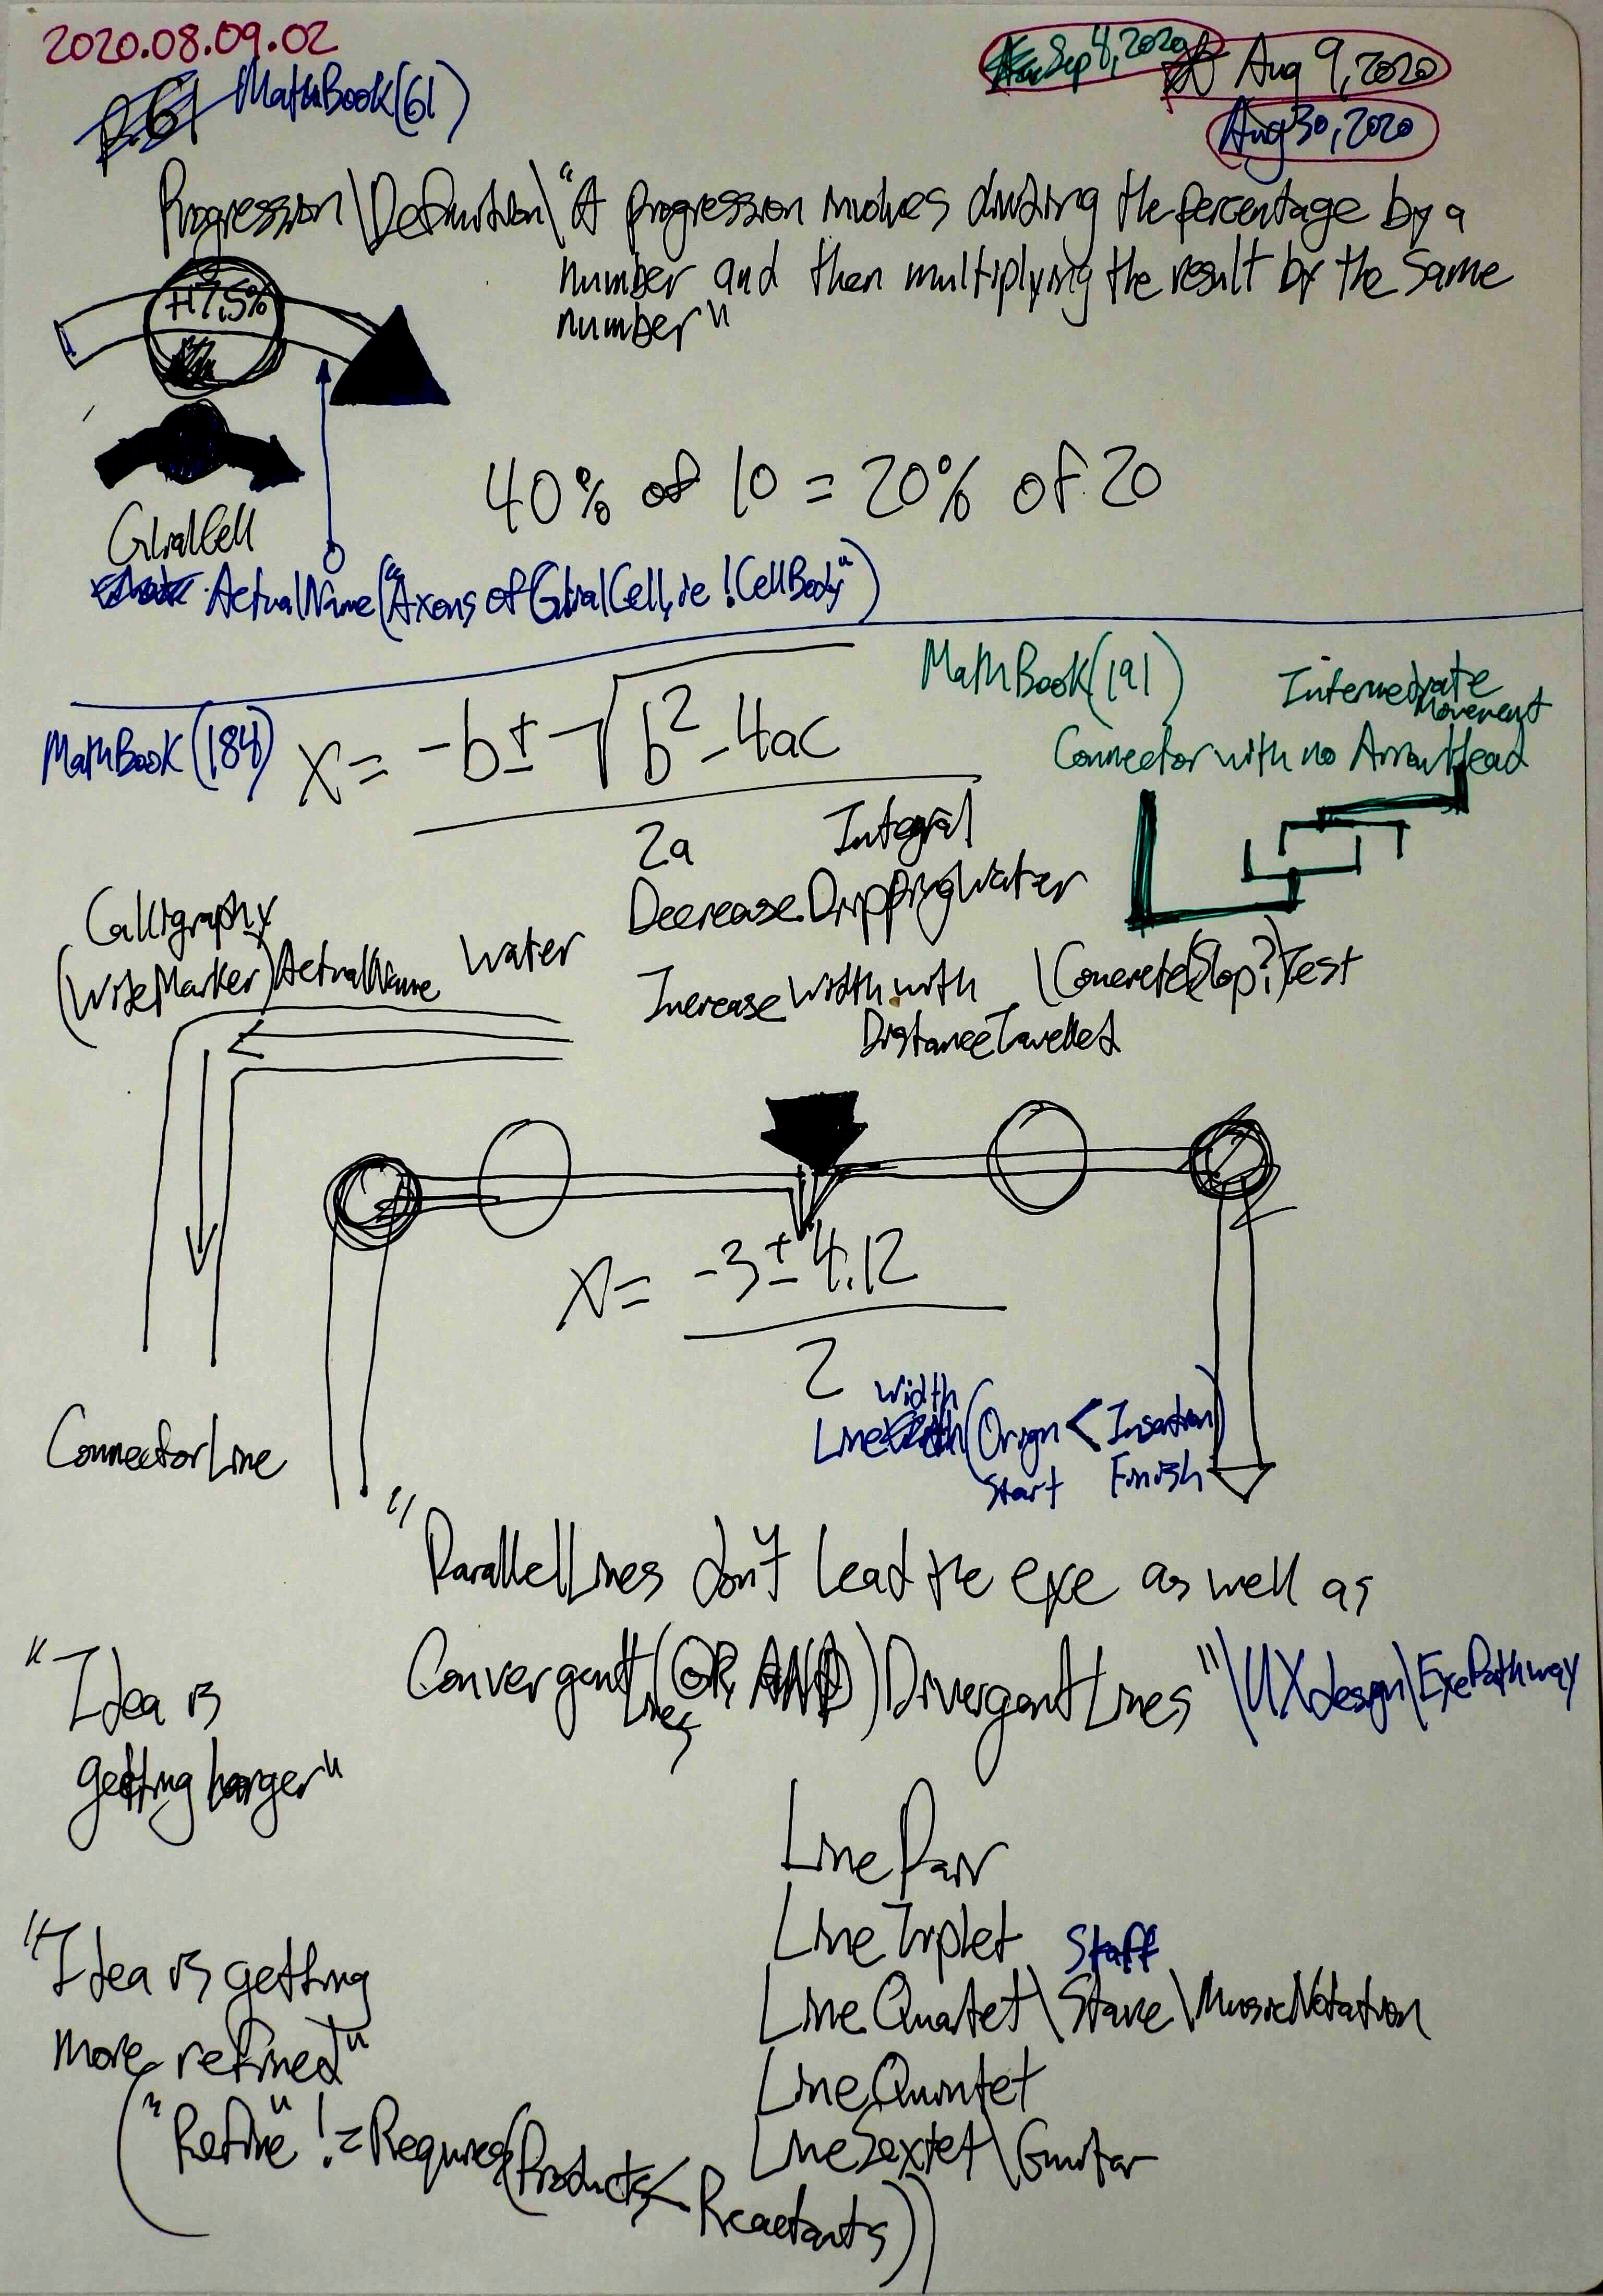 2020.08.09.02
Sep 4, 2020
Aug 9, 2020
p.61 MathBook(61)
Aug 30, 2020
Progression\Definition\"A progression involves dividing the percentage by a
number and then multiplying the result by the same
number"
+17.5%
40% of 10 = 20% of 20
GlialCell
ActualName("Axons of GlialCell, ie !CellBody")
MathBook(191)
Intermediate
Movement
Connector with no ArrowHead
MathBook(184)
x = -b ± √b² - 4ac
2a
Integral
Decrease DrippingWater
Calligraphy
(WideMarker)ActualName
Water
Increase Width with \Concrete(Slop?)Test
Distance Travelled
x = -3 ± 4.12
2
Width
Line (Origin < Insertion)
Start Finish
ConnectorLine
"ParallelLines don't lead the eye as well as
ConvergentLines(OR, AND)DivergentLines"\UXdesign\EyePathway
"Idea is
getting larger"
LinePair
LineTriplet
Staff
LineQuartet\Stave\MusicNotation
LineQuintet
LineSextet\Guitar
"Idea is getting
more refined"
("Refine" != Requires(Products < Reactants))